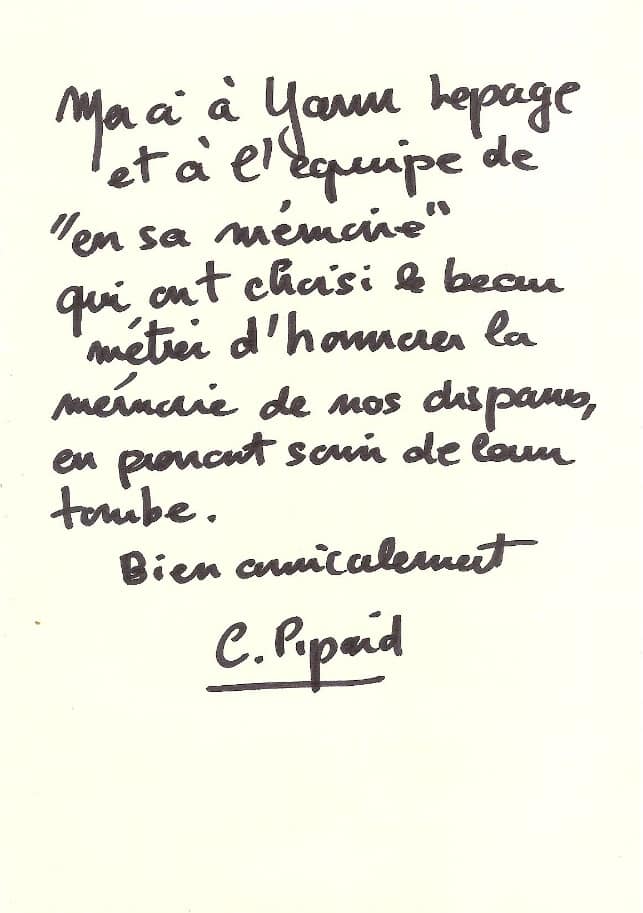 Merci à Yann Lepage
et à l'équipe de
"en sa mémoire"
qui ont choisi le beau
métier d'honorer la
mémoire de nos disparus,
en prenant soin de leur
tombe.
Bien amicalement
C. Pipard